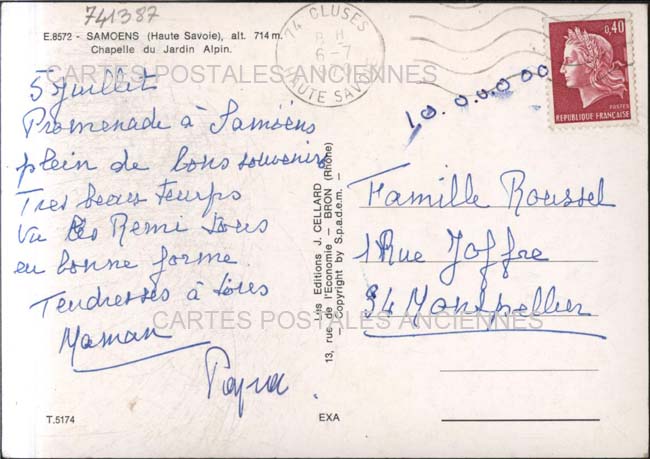 741387
E.8572 - SAMOENS (Haute Savoie), alt. 714 m.
Chapelle du Jardin Alpin.
74 CLUSES
6-7
HAUTE SAVOIE
0,40
POSTES
REPUBLIQUE FRANÇAISE
CARTES POSTALES ANCIENNES
10.000000
5 Juillet
Promenade à Samoëns
plein de bons souvenirs
Tres beau temps
Vu les Remi tous
en bonne forme
Tendresses à tous
Maman
Les Editions J. CELLARD
13, rue de l'Economie - BRON (Rhône)
- Copyright by S.p.a.d.e.m. -
Famille Roussel
1 Rue Joffre
34 Montpellier
CARTES POSTALES ANCIENNES
T.5174
EXA